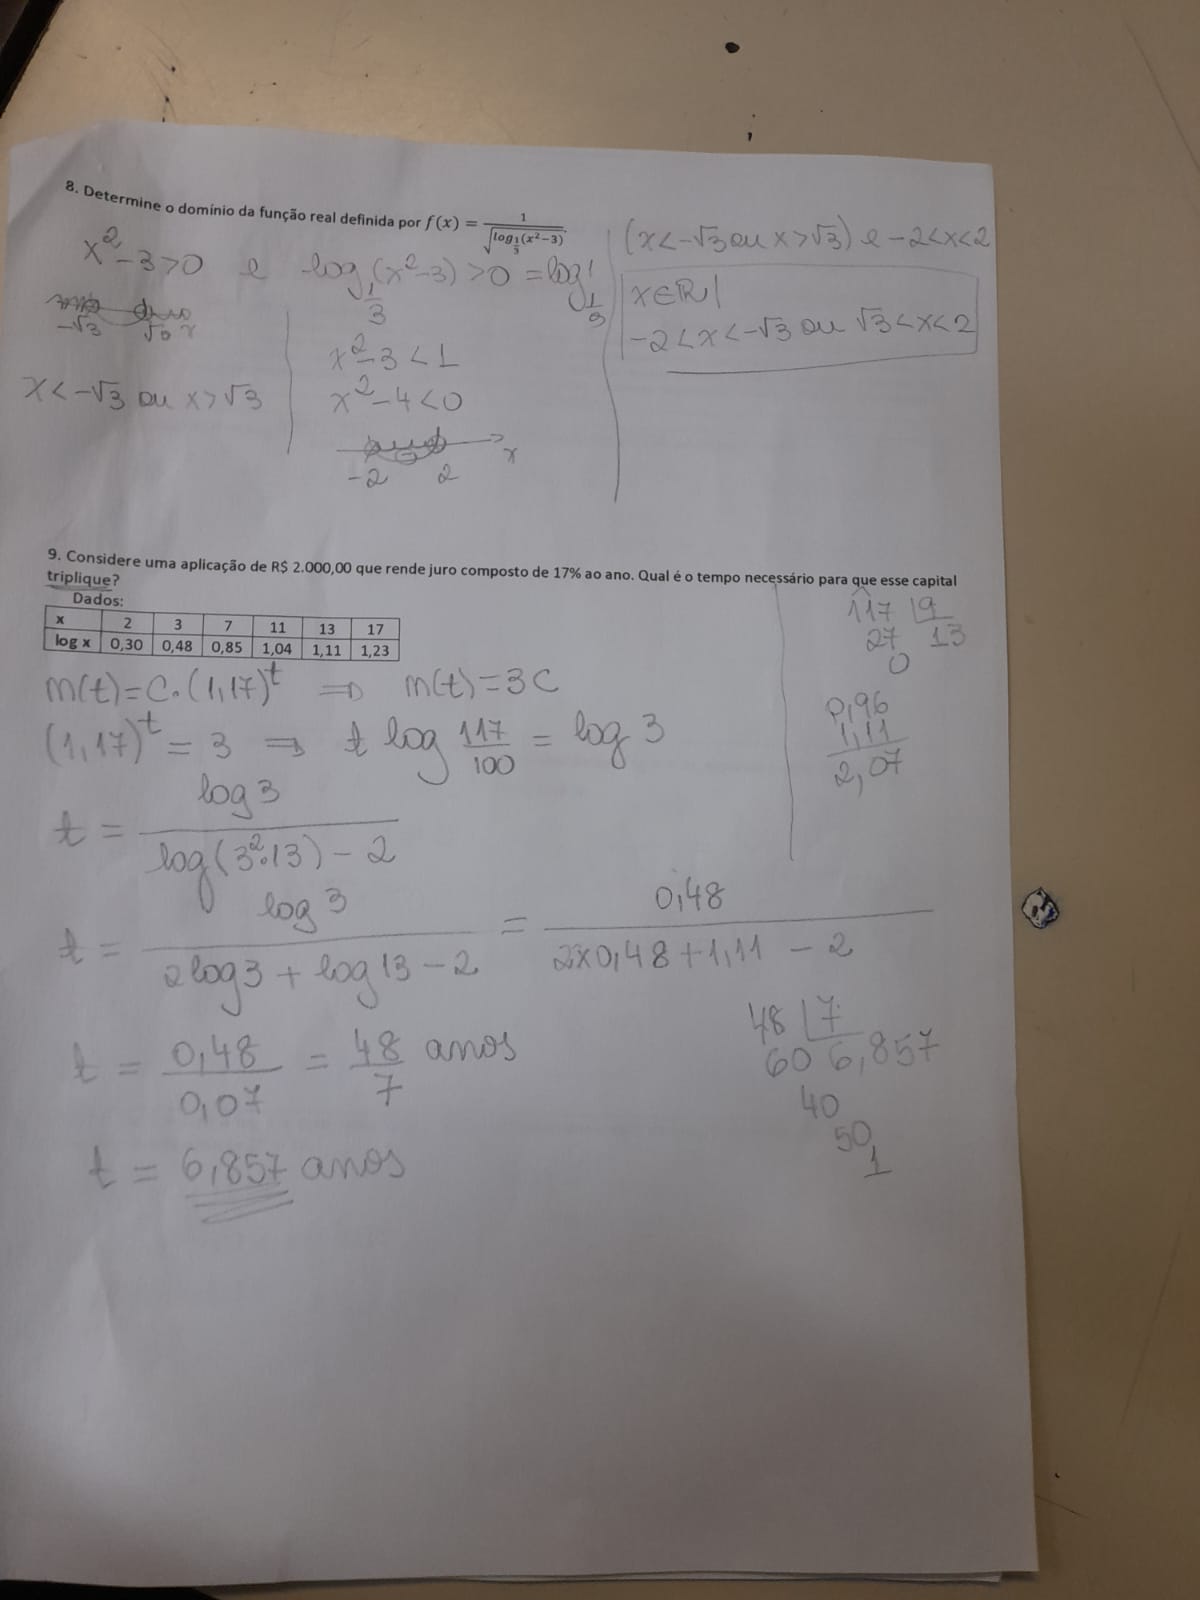 8. Determine o domínio da função real definida por f(x) = 1/√(log_{1/3}(x²−3)).
x² − 3 > 0 e log_{1/3}(x²−3) > 0 = log_{1/3} 1
−√3 √3 x
x < −√3 ou x > √3
x² − 3 < 1
x² − 4 < 0
−2 2 x
(x < −√3 ou x > √3) e −2 < x < 2
x ∈ ℝ |
−2 < x < −√3 ou √3 < x < 2
9. Considere uma aplicação de R$ 2.000,00 que rende juro composto de 17% ao ano. Qual é o tempo necessário para que esse capital
triplique?
Dados:
x 2 3 7 11 13 17
log x 0,30 0,48 0,85 1,04 1,11 1,23
m(t) = C.(1,17)^t ⇒ m(t) = 3C
(1,17)^t = 3 ⇒ t log 117/100 = log 3
t = log 3 / (log(3².13) − 2)
t = log 3 / (2 log 3 + log 13 − 2) = 0,48 / (2x0,48 + 1,11 − 2)
t = 0,48/0,07 = 48/7 anos
t = 6,857 anos
117 | 9
27 13
0
0,96
1,11
2,07
48 | 7
60 6,857
40
50
1